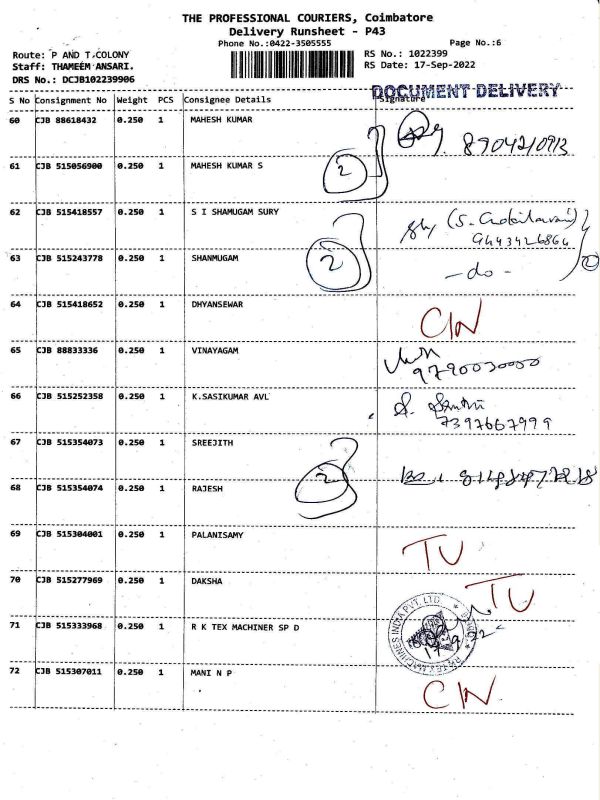 THE PROFESSIONAL COURIERS, Coimbatore
Delivery Runsheet - P43
Phone No.:0422-3505555
Page No.:6
Route: P AND T.COLONY
RS No.: 1022399
Staff: THAMEEM ANSARI.
RS Date: 17-Sep-2022
DRS No.: DCJB102239906
DOCUMENT DELIVERY
S No Consignment No Weight PCS Consignee Details Signature
60 CJB 88618432 0.250 1 MAHESH KUMAR
8904210913
61 CJB 515056900 0.250 1 MAHESH KUMAR S
2
62 CJB 515418557 0.250 1 S I SHAMUGAM SURY
9443426864
63 CJB 515243778 0.250 1 SHANMUGAM
2
-do-
2
64 CJB 515418652 0.250 1 DHYANSEWAR
CIN
65 CJB 88833336 0.250 1 VINAYAGAM
9790030050
66 CJB 515252358 0.250 1 K.SASIKUMAR AVL
7397667999
67 CJB 515354073 0.250 1 SREEJITH
2
68 CJB 515354074 0.250 1 RAJESH
69 CJB 515304001 0.250 1 PALANISAMY
TU
70 CJB 515277969 0.250 1 DAKSHA
TU
71 CJB 515333968 0.250 1 R K TEX MACHINER SP D
MACHINES INDIA PVT. LTD.
72 CJB 515307011 0.250 1 MANI N P
CIN